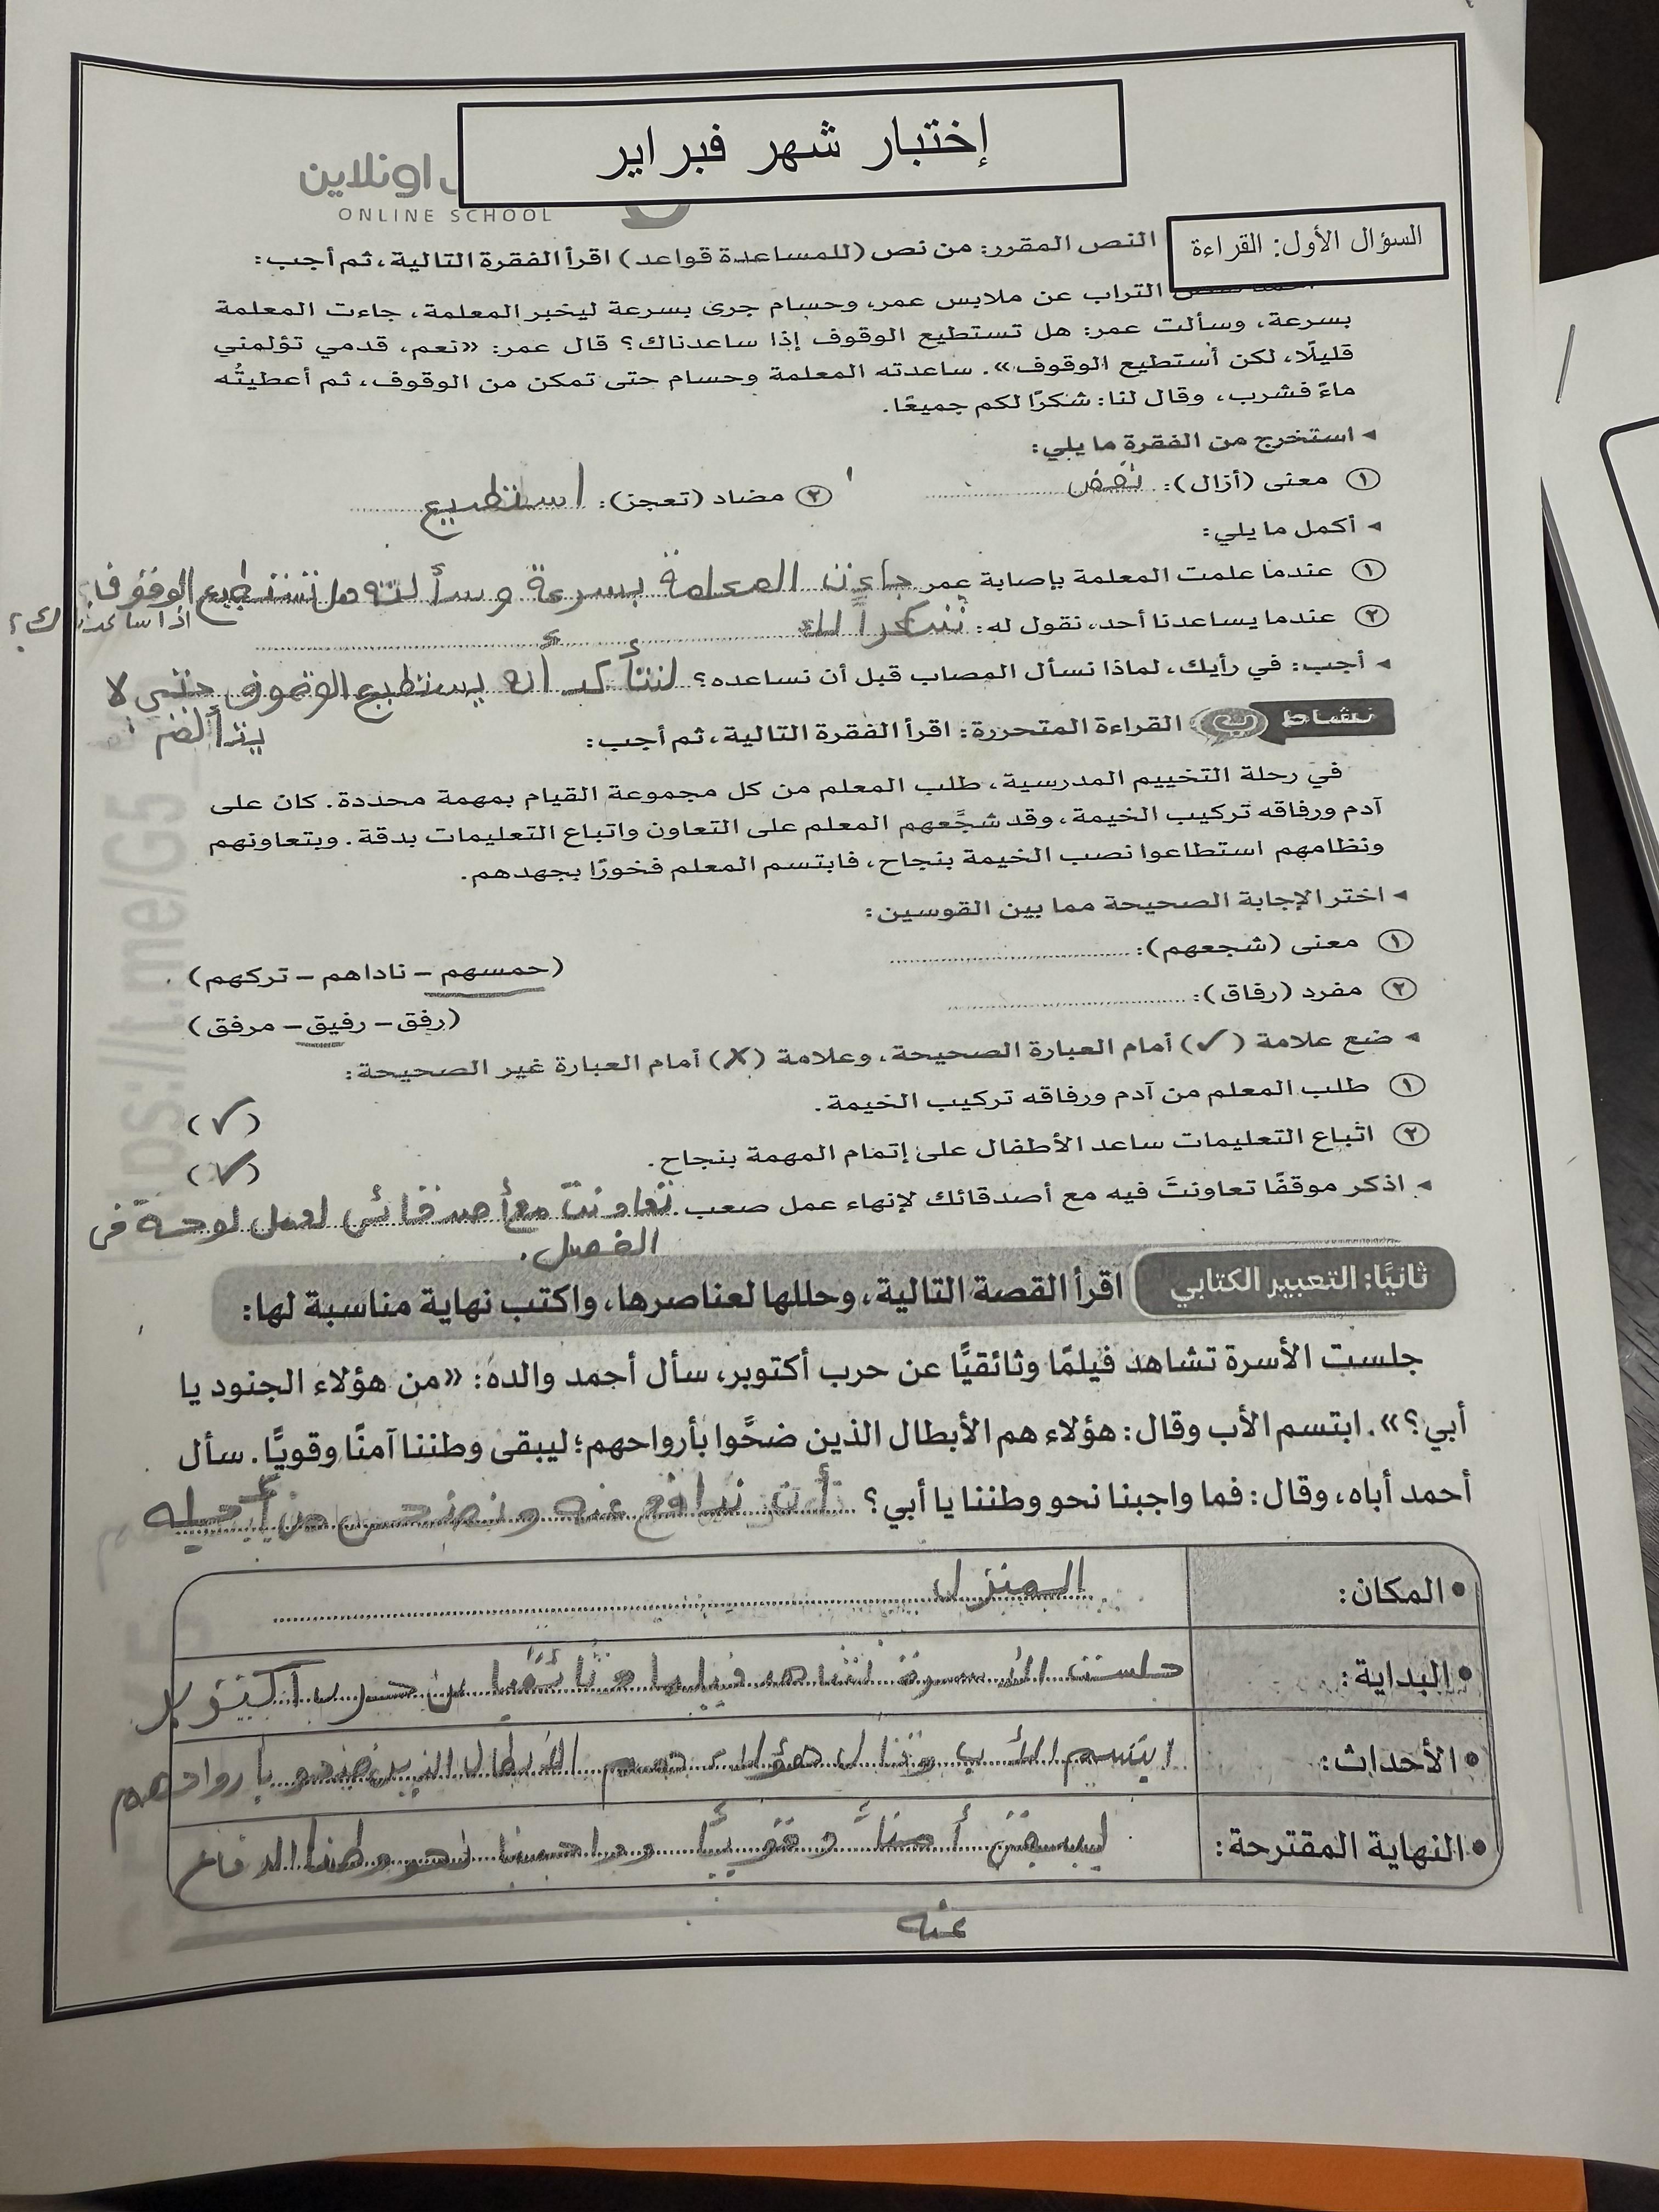 إختبار شهر فبراير
اونلاين
ONLINE SCHOOL
السؤال الأول: القراءة
النص المقرر: من نص (للمساعدة قواعد) اقرأ الفقرة التالية، ثم أجب:
التراب عن ملابس عمر، وحسام جرى بسرعة ليخبر المعلمة، جاءت المعلمة
بسرعة، وسألت عمر: هل تستطيع الوقوف إذا ساعدناك؟ قال عمر: «نعم، قدمي تؤلمني
قليلًا، لكن أستطيع الوقوف». ساعدته المعلمة وحسام حتى تمكن من الوقوف، ثم أعطيتُه
ماءً فشرب، وقال لنا: شكرًا لكم جميعًا.
◂ استخرج من الفقرة ما يلي:
١ معنى (أزال): نفض
٢ مضاد (تعجز): استطيع
◂ أكمل ما يلي:
١ عندما علمت المعلمة بإصابة عمر جاءت المعلمة بسرعة وسألته هل تستطيع الوقوف
اذا ساعدناك؟
٢ عندما يساعدنا أحد، نقول له: شكراً لك
◂ أجب: في رأيك، لماذا نسأل المصاب قبل أن نساعده؟ لنتأكد أنه يستطيع الوقوف حتى لا
يتألم
نشاط ب القراءة المتحررة: اقرأ الفقرة التالية، ثم أجب:
في رحلة التخييم المدرسية، طلب المعلم من كل مجموعة القيام بمهمة محددة. كان على
آدم ورفاقه تركيب الخيمة، وقد شجَّعهم المعلم على التعاون واتباع التعليمات بدقة. وبتعاونهم
ونظامهم استطاعوا نصب الخيمة بنجاح، فابتسم المعلم فخورًا بجهدهم.
◂ اختر الإجابة الصحيحة مما بين القوسين:
١ معنى (شجعهم): (حمسهم – ناداهم – تركهم)
٢ مفرد (رفاق): (رفق – رفيق – مرفق)
◂ ضع علامة (✓) أمام العبارة الصحيحة، وعلامة (✗) أمام العبارة غير الصحيحة:
١ طلب المعلم من آدم ورفاقه تركيب الخيمة. (✓)
٢ اتباع التعليمات ساعد الأطفال على إتمام المهمة بنجاح. (✓)
◂ اذكر موقفًا تعاونتَ فيه مع أصدقائك لإنهاء عمل صعب. تعاونت مع أصدقائى لعمل لوحة فى
الفصل.
ثانيًا: التعبير الكتابي اقرأ القصة التالية، وحللها لعناصرها، واكتب نهاية مناسبة لها:
جلست الأسرة تشاهد فيلمًا وثائقيًّا عن حرب أكتوبر، سأل أحمد والده: «من هؤلاء الجنود يا
أبي؟». ابتسم الأب وقال: هؤلاء هم الأبطال الذين ضحَّوا بأرواحهم؛ ليبقى وطننا آمنًا وقويًّا. سأل
أحمد أباه، وقال: فما واجبنا نحو وطننا يا أبي؟ أن ندافع عنه ونضحى من أجله
• المكان: المنزل
• البداية: جلست الأسرة تشاهد فيلما وثائقيا عن حرب أكتوبر
• الأحداث: ابتسم الأب وقال هؤلاء هم الأبطال الذين ضحو بأرواحهم
• النهاية المقترحة: ليبقى أمناً وقويًا وواجبنا نحو وطننا الدفاع
عنه
https://t.me/G5